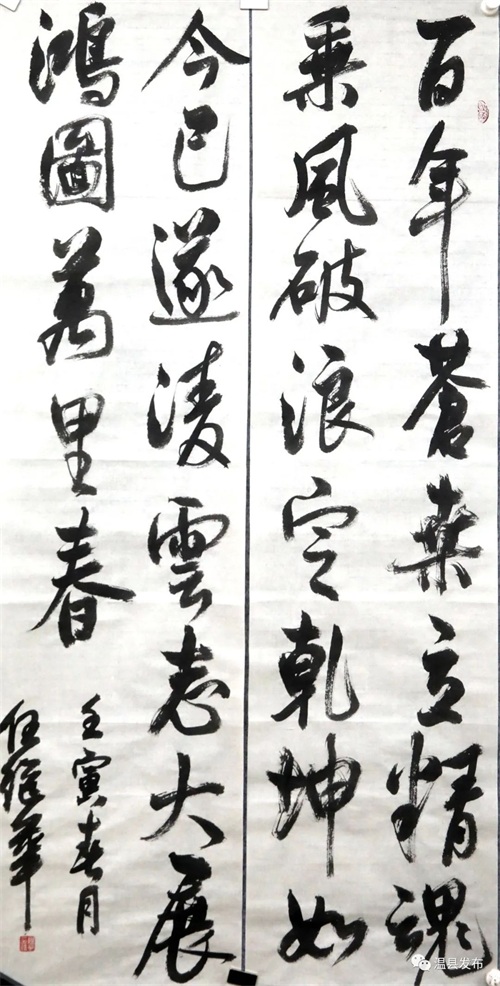 百年蒼桒立精魂
乘風破浪定乾坤如
今已遂淩雲志大展
鴻圖萬里春
壬寅春月
任繼華
温县发布